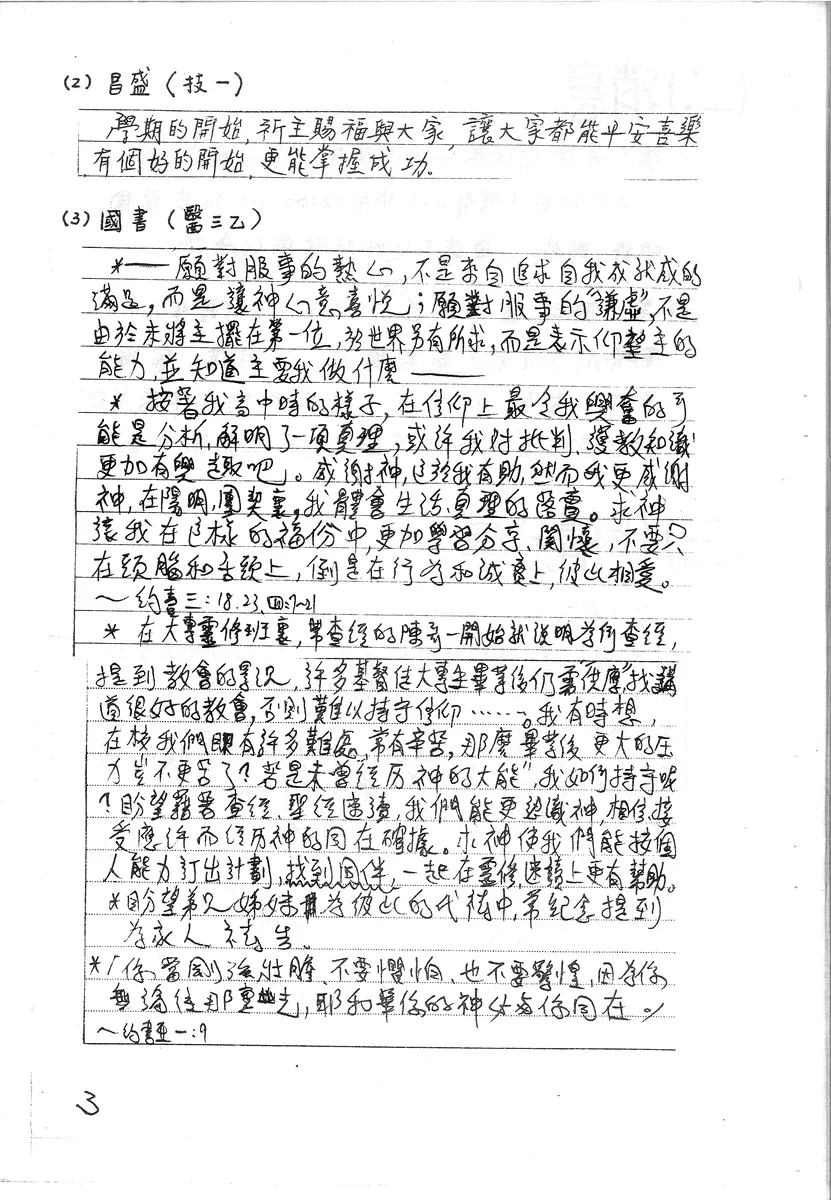 (2) 昌盛（技一）
學期的開始，祈主賜福與大家，讓大家都能平安喜樂
有個好的開始，更能掌握成功。
(3) 國書（醫三乙）
*——願對服事的熱心，不是來自追求自我成就感的
滿足，而是讓神心意喜悅；願對服事的"謙虛"，不是
由於未將主擺在第一位，於世界另有所求，而是表示仰望主的
能力，並知道主要我做什麼——
* 按著我高中時的樣子，在信仰上最令我興奮的可
能是分析，解明了一項真理，或許我對批判、護教知識
更加有興趣吧。感謝神，這於我有助，然而我更感謝
神，在陽明，團契裏，我體會生活真理的落實。求神
讓我在這樣的福份中，更加學習分享、關懷，不要只
在頭腦和舌頭上，倒是在行為和誠實上，彼此相愛。
～約壹三:18.23,四:7~21
* 在大專靈修班裏，帶查經的陳哥一開始就說明為何查經，
提到教會的景況，許多基督徒大專生畢業後仍需"供應"找講
道很好的教會，否則難以持守信仰……。我有時想，
在校我們即有許多難處，常有辛苦，那麼畢業後更大的壓
力豈不更苦了？若是未曾經历神的大能"，我如何持守呢
？盼望藉著查經、聖經速讀，我們能更認識神，相信接
受應许而經历神的同在確據。求神使我們能按個
人能力訂出計劃，找到同伴，一起在靈修、速讀上更有幫助。
*盼望弟兄姊妹為彼此的代禱中，常紀念提到
為家人禱告。
*「你當剛強壯膽、不要懼怕、也不要驚惶，因為你
無論往那裏去，耶和華你的神必與你同在。」
～約書亞一:9
3